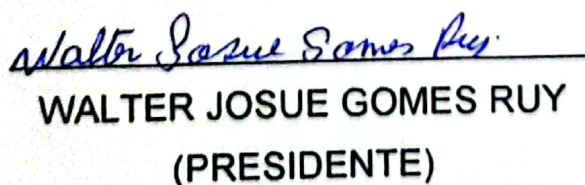 Walter Josue Gomes Ruy.
WALTER JOSUE GOMES RUY
(PRESIDENTE)